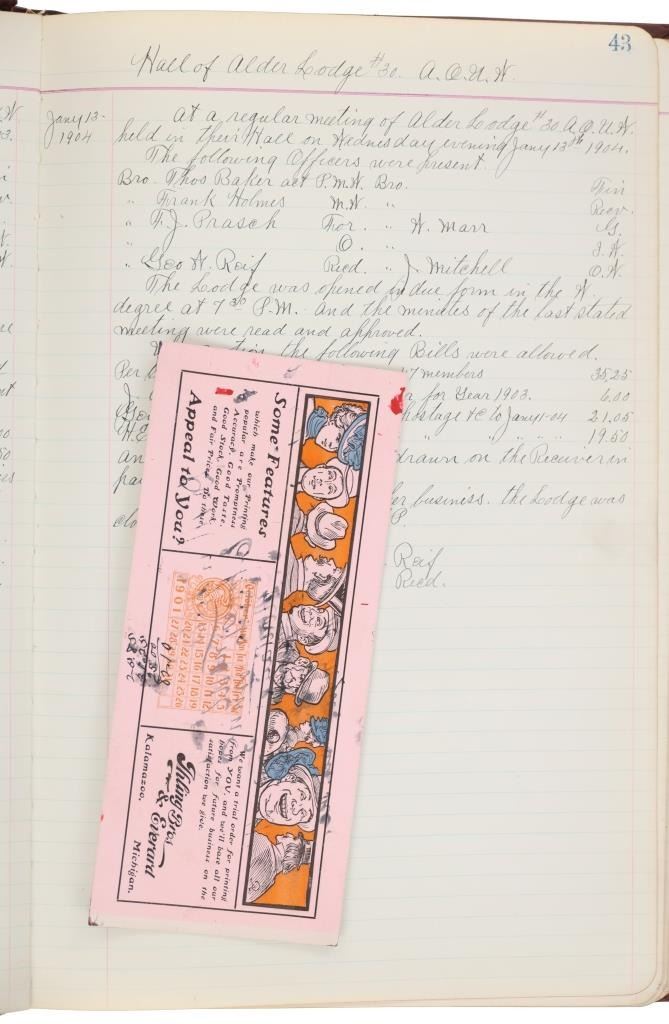 43
Hall of Alder Lodge #30. A.O.U.W.
Jany 13-
1904
At a regular meeting of Alder Lodge #30 A.O.U.W.
held in their Hall on Wednesday evening Jany 13th 1904.
The following Officers were present.
Bro. Thos Baker act P.M.W. Bro. Fin
" Frank Holmes M.W. " Recv.
" F. J. Prasch For. " W. Marr G.
" O. " I.W.
" Geo W. Reif Recd. " J. Mitchell O.W.
The Lodge was opened in due form in the W.
degree at 7 30 P.M. And the minutes of the last stated
meeting were read and approved.
the following Bills were allowed.
Per members 35.25
for Year 1903. 6.00
Postage &c to Jany 1-04 21.05
" " " " " 19.50
drawn on the Receiver in
business. the Lodge was
Reif
Recd.
Some Features
which make our Printing
popular are Promptness
Accuracy, Good Taste,
Good Stock, Good Work,
and Fair Prices. Do these
Appeal to You?
1901
We want a trial order for printing
from YOU, and we'll base all our
hopes for future business on the
satisfaction we give.
Ihling Bros
& Everard
Kalamazoo, Michigan.